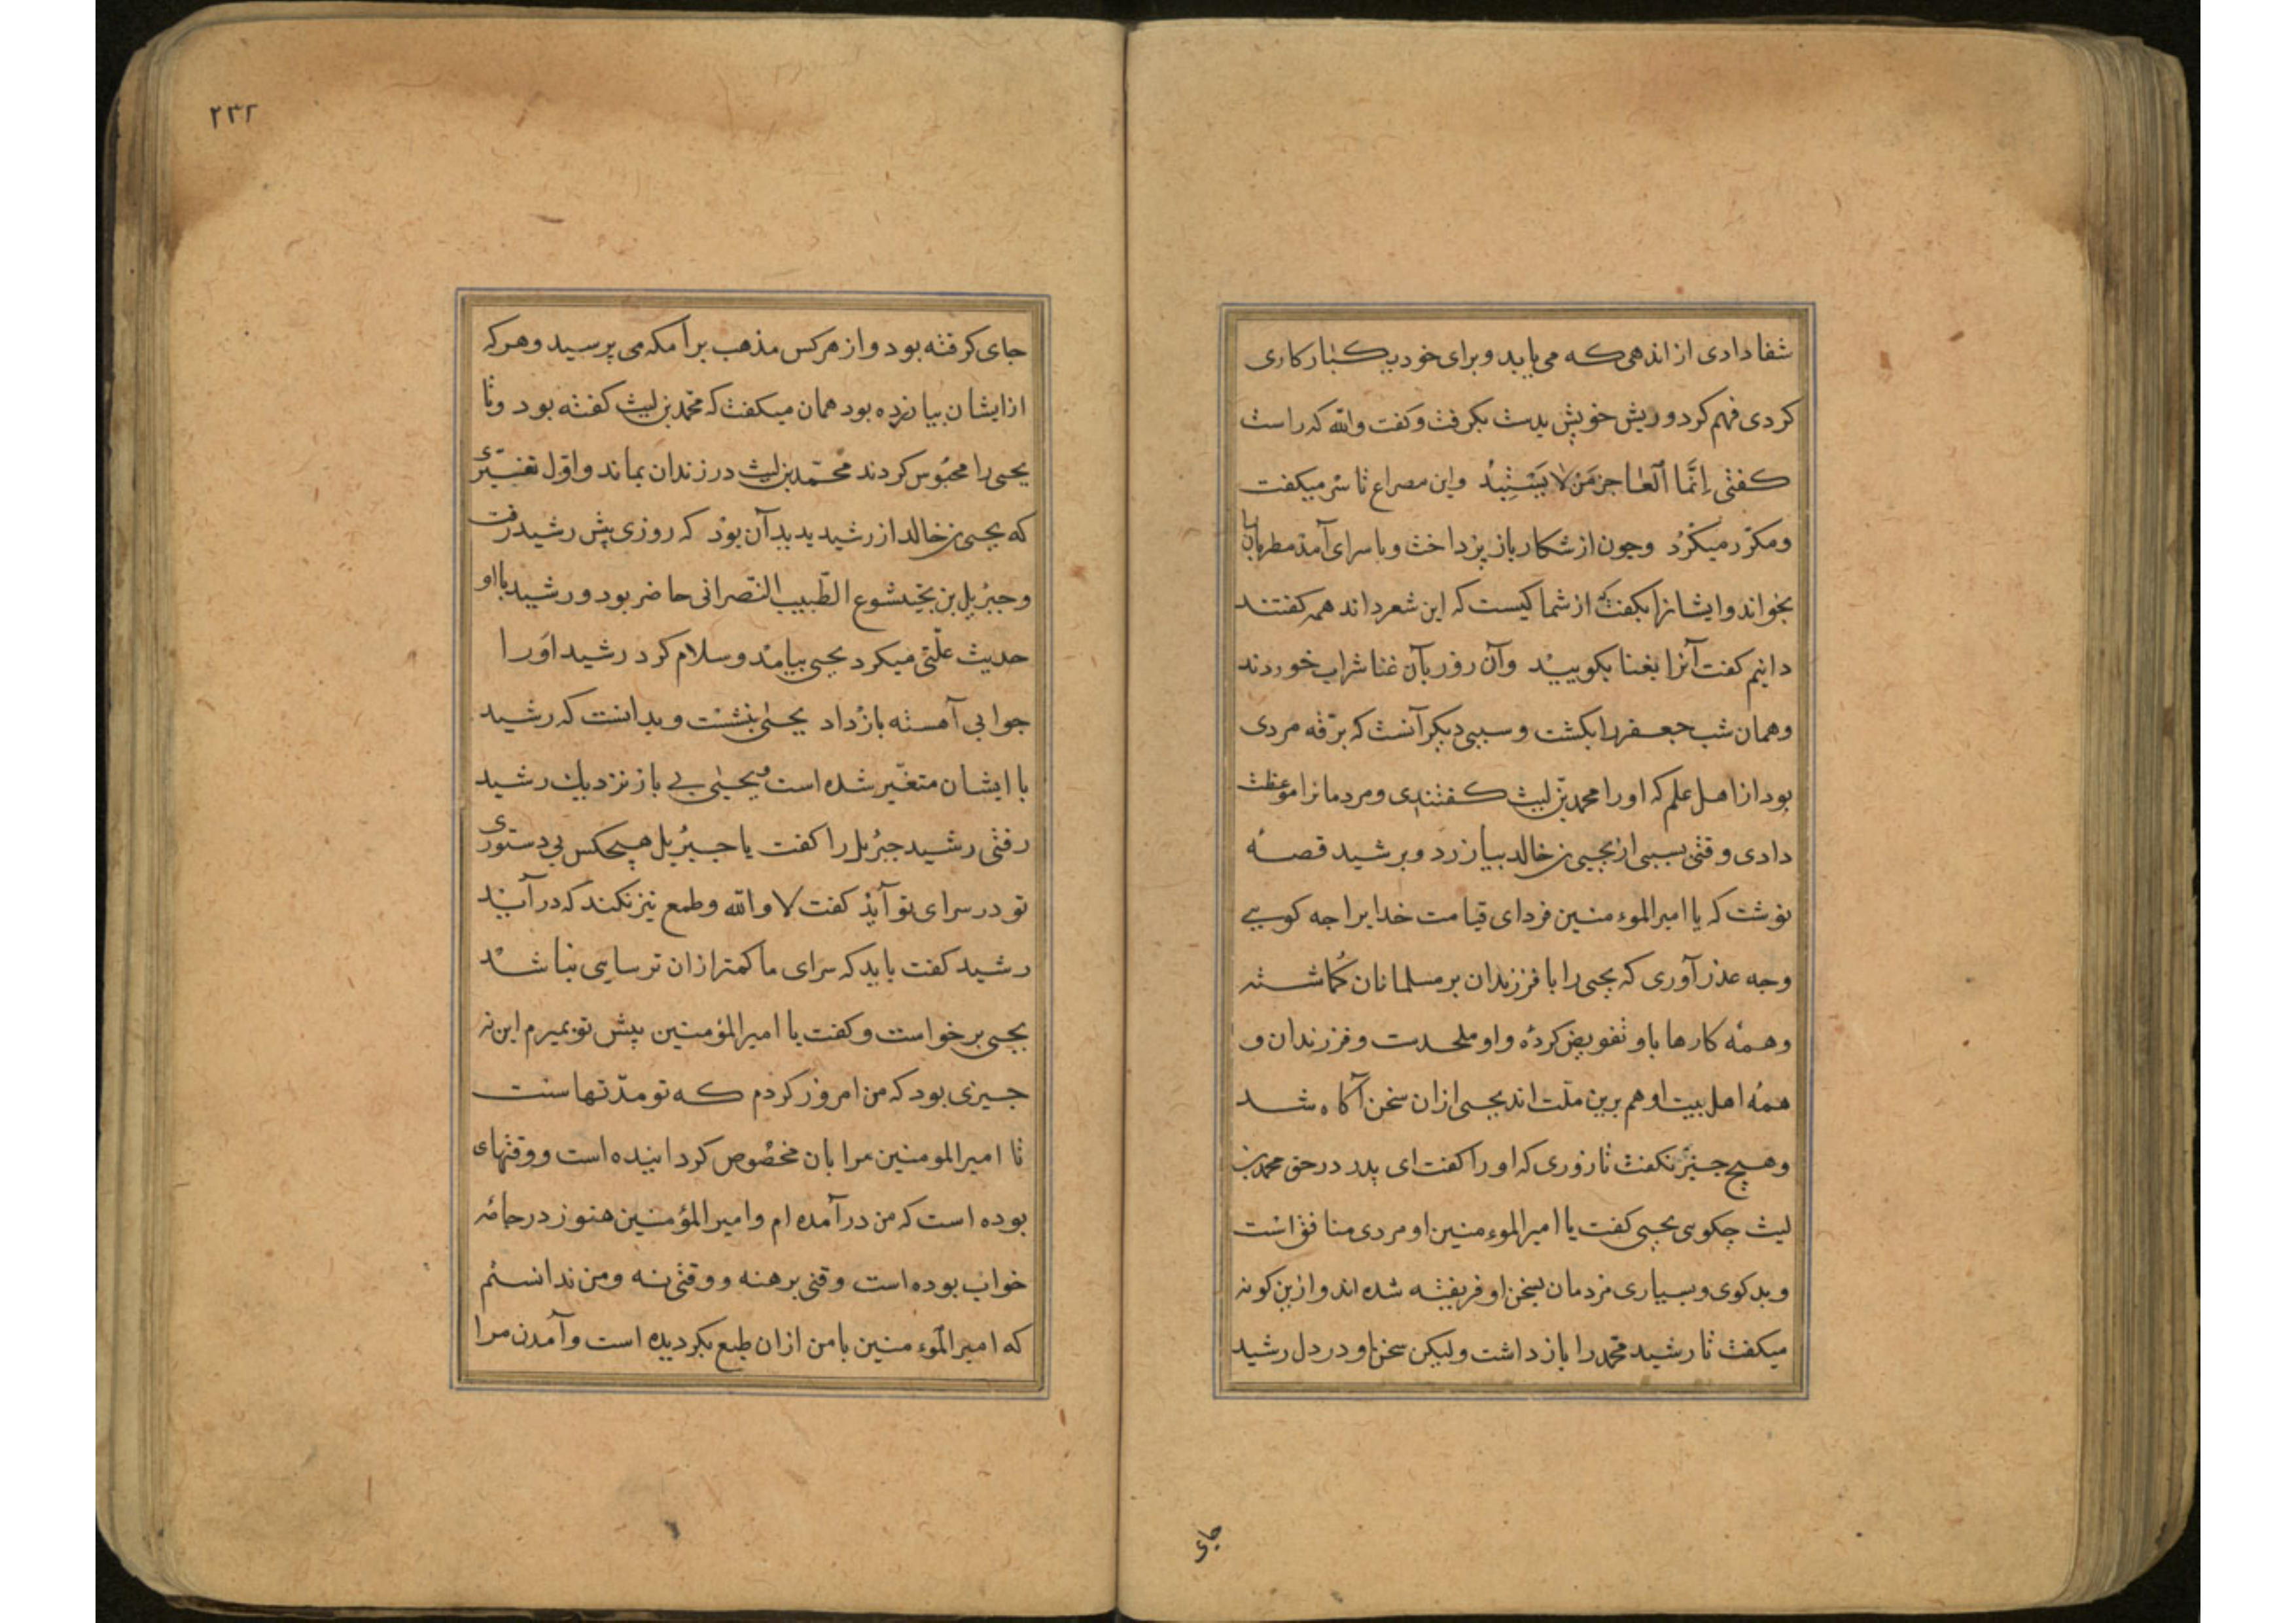 شفا دادی از اندهی که می یابد و برای خود یک بار کاری
کردی فهم کرد و ریش خویش بدست بکرفت و کفت والله که راست
کفتی اِنَّمَا اَلْعٰاجز مَنْ لا یَسْتَبِدُ واین مصراع تا شب میکفت
ومکرّر میکرد وجون از شکار باز پرداخت وبا سرای آمد مطربانرا
بخواند وایشانرا بکفت که از شما کیست که این شعر داند همه کفتند
دانیم کفت آنرا بغنا بکویید وآن روز بآن غنا شراب خوردند
وهمان شب جعفر را بکشت وسببی دیکر آنست که برقه مردی
بود از اهل علم که اورا محمد بن لیث کفتندی ومردمانرا موعظت
دادی وقتی بسببی از یحیی بن خالد بیازرد وبرشید قصهٔ
نوشت که یا امیر الموء منین فردای قیامت خدایرا جه کویی
وجه عذر آوری که یحیی را با فرزندان بر مسلمانان کماشته
وهمهٔ کارها باو تفویض کردهٔ واو ملحدست وفرزندان و
همهٔ اهل بیت او هم برین ملّت اند یحیی ازان سخن آکاه شد
وهیچ جیز نکفت تا روزی که اورا کفت ای پدر در حق محمد بن
لیث چکویی یحیی کفت یا امیر الموء منین او مردی منافق است
وبد کوی وبسیاری مردمان بسخن او فریفته شده اند وازین کونه
میکفت تا رشید محمّد را باز داشت ولیکن سخن او در دل رشید
جای
۲۳۲
جای کرفته بود واز هر کس مذهب برامکه می پرسید وهر که
ازایشان بیازرده بود همان میکفت که محمّد بن لیث کفته بود وتا
یحیی را محبُوس کردند محمّد بن لیث در زندان بماند واوّل تغیّری
که یحیی بن خالد از رشید بدید آن بود که روزی پیش رشید رفت
وجبرئیل بن بختیشوع الطّبیب النّصرانی حاضر بود ورشید با او
حدیث علّتی میکرد یحیی بیامد وسلام کرد رشید اورا
جوابی آهسته باز داد یحیٰی بنشست وبدانست که رشید
با ایشان متغیّر شده است ویحیٰی بی باز نزدیك رشید
رفتی رشید جبرئیل را کفت یا جبرئیل هیچکس بی دستوری
تو در سرای تو آید کفت لا والله وطمع نیز نکند که در آید
رشید کفت باید که سرای ما کمتر ازان ترسایی نباشد
یحیی برخواست وکفت یا امیر المؤمنین پیش تو بمیرم این نه
جیزی بود که من امروز کردم که تو مدّتهاست
تا امیر المومنین مرا بان مخصُوص کردانیده است ووقتهای
بوده است که من در آمده ام وامیر المؤمنین هنوز در جامهٔ
خواب بوده است وقتی برهنه ووقتی نه ومن ندانستم
که امیر الموء منین با من ازان طبع بکردیده است وآمدن مرا